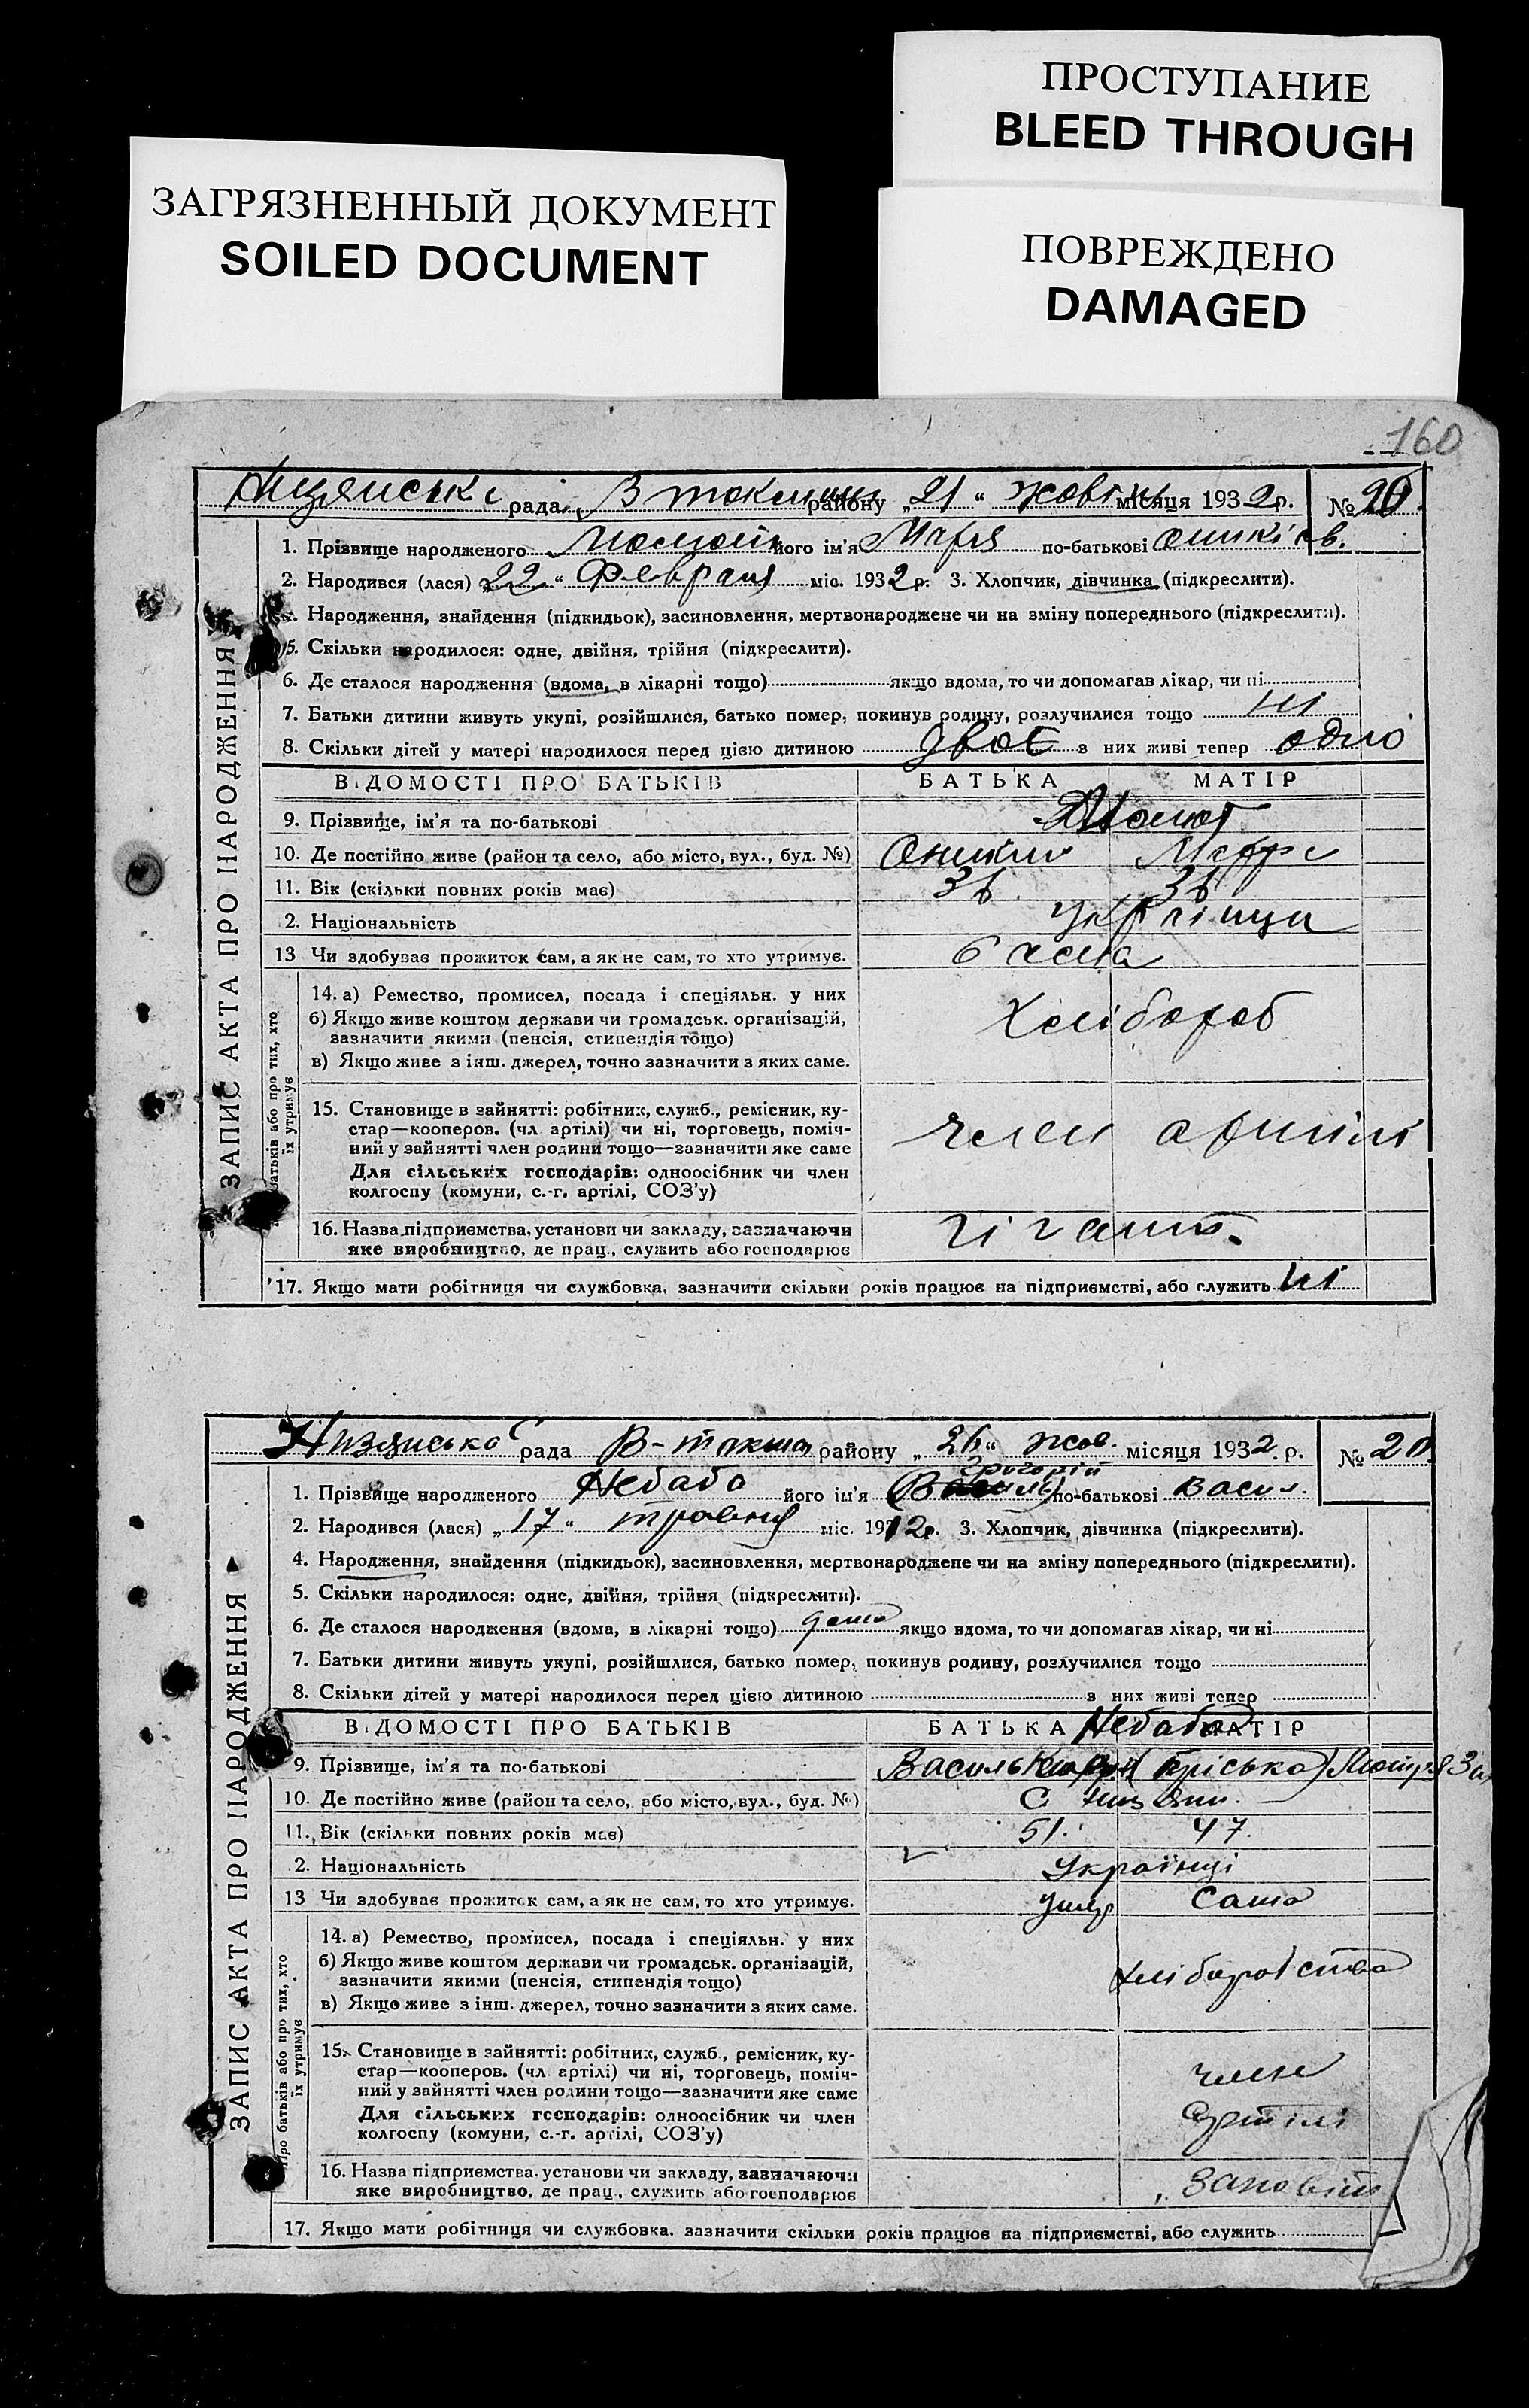 ПРОСТУПАНИЕ
BLEED THROUGH
ЗАГРЯЗНЕННЫЙ ДОКУМЕНТ
SOILED DOCUMENT
ПОВРЕЖДЕНО
DAMAGED
160
рада В району „21“ місяця 1932 р. №
1. Прізвище народженого його ім'я по-батькові
2. Народився (лася) „22“ Февраля міс. 1932 р. 3. Хлопчик, дівчинка (підкреслити).
Народження, знайдення (підкидьок), засиновлення, мертвонароджене чи на зміну попереднього (підкреслити).
5. Скільки народилося: одне, двійня, трійня (підкреслити).
6. Де сталося народження (вдома, в лікарні тощо) якщо вдома, то чи допомагав лікар, чи ні
7. Батьки дитини живуть укупі, розійшлися, батько помер, покинув родину, розлучилися тощо ні
8. Скільки дітей у матері народилося перед цією дитиною двоє з них живі тепер одно
ВІДОМОСТІ ПРО БАТЬКІВ БАТЬКА МАТІР
9. Прізвище, ім'я та по-батькові
10. Де постійно живе (район та село, або місто, вул., буд. №)
11. Вік (скільки повних років має) 36 36
2. Національність
13 Чи здобуває прожиток сам, а як не сам, то хто утримує.
14. а) Ремество, промисел, посада і спеціяльн. у них
б) Якщо живе коштом держави чи громадськ. організацій,
зазначити якими (пенсія, стипендія тощо)
в) Якщо живе з інш. джерел, точно зазначити з яких саме.
Хлібороб
15. Становище в зайнятті: робітник, служб., ремісник, ку-
стар—кооперов. (чл. артілі) чи ні, торговець, поміч-
ний у зайнятті член родини тощо—зазначити яке саме
Для сільських господарів: одноосібник чи член
колгоспу (комуни, с.-г. артілі, СОЗ'у)
член артілі
16. Назва підприємства, установи чи закладу, зазначаючи
яке виробництво, де прац., служить або господарює
гігант.
17. Якщо мати робітниця чи службовка, зазначити скільки років працює на підприємстві, або служить ні
ЗАПИС АКТА ПРО НАРОДЖЕННЯ
батьків або про тих, хто
їх утримує
рада району „26“ жов. місяця 1932 р. № 20
1. Прізвище народженого Небаба його ім'я Григорій (Василь) по-батькові Васил.
2. Народився (лася) „17“ травня міс. 1912 р. 3. Хлопчик, дівчинка (підкреслити).
4. Народження, знайдення (підкидьок), засиновлення, мертвонароджене чи на зміну попереднього (підкреслити).
5. Скільки народилося: одне, двійня, трійня (підкреслити).
6. Де сталося народження (вдома, в лікарні тощо) дома якщо вдома, то чи допомагав лікар, чи ні
7. Батьки дитини живуть укупі, розійшлися, батько помер, покинув родину, розлучилися тощо
8. Скільки дітей у матері народилося перед цією дитиною з них живі тепер
ВІДОМОСТІ ПРО БАТЬКІВ БАТЬКА МАТІР
Небаба
9. Прізвище, ім'я та по-батькові Василь (Пріська)
10. Де постійно живе (район та село, або місто, вул., буд. №) С
11. Вік (скільки повних років має) 51. 47.
2. Національність Українці
13 Чи здобуває прожиток сам, а як не сам, то хто утримує. Умер Сама
14. а) Ремество, промисел, посада і спеціяльн. у них
б) Якщо живе коштом держави чи громадськ. організацій,
зазначити якими (пенсія, стипендія тощо)
в) Якщо живе з інш. джерел, точно зазначити з яких саме.
хліборобство
15. Становище в зайнятті: робітник, служб., ремісник, ку-
стар—кооперов. (чл. артілі) чи ні, торговець, поміч-
ний у зайнятті член родини тощо—зазначити яке саме
Для сільських господарів: одноосібник чи член
колгоспу (комуни, с.-г. артілі, СОЗ'у)
член
артілі
16. Назва підприємства, установи чи закладу, зазначаючи
яке виробництво, де прац., служить або господарює
„Заповіт
17. Якщо мати робітниця чи службовка, зазначити скільки років працює на підприємстві, або служить
ЗАПИС АКТА ПРО НАРОДЖЕННЯ
Про батьків або про тих, хто
їх утримує